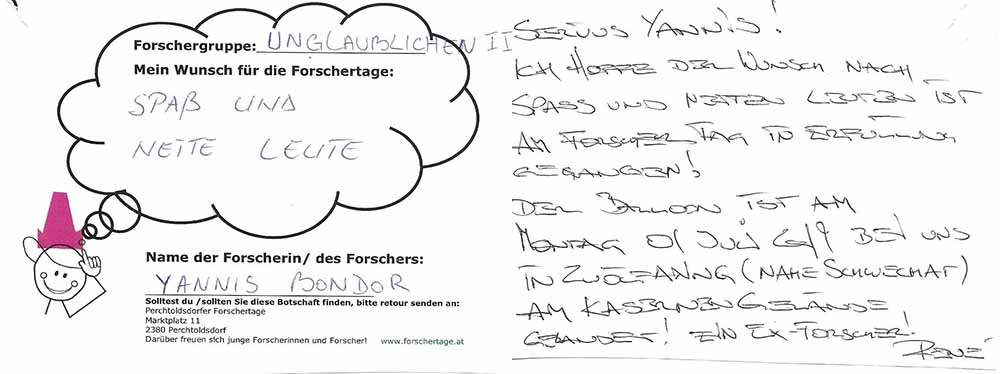 Forschergruppe: UNGLAUBLICHEN II
Mein Wunsch für die Forschertage:
SPAß UND
NETTE LEUTE
Name der Forscherin/ des Forschers:
YANNIS BONDOR
Solltest du /sollten Sie diese Botschaft finden, bitte retour senden an:
Perchtoldsdorfer Forschertage
Marktplatz 11
2380 Perchtoldsdorf
Darüber freuen sich junge Forscherinnen und Forscher! www.forschertage.at
SERVUS YANNIS!
ICH HOFFE DER WUNSCH NACH
SPASS UND NETTEN LEUTEN IST
AM FORSCHER TAG IN ERFÜLLUNG
GEGANGEN!
DER BALLOON IST AM
MONTAG 01 JULI BEI UNS
IN ZWÖLFAXING (NAHE SCHWECHAT)
AM KASERNENGELÄNDE
GELANDET! EIN EX-FORSCHER!
RENÉ